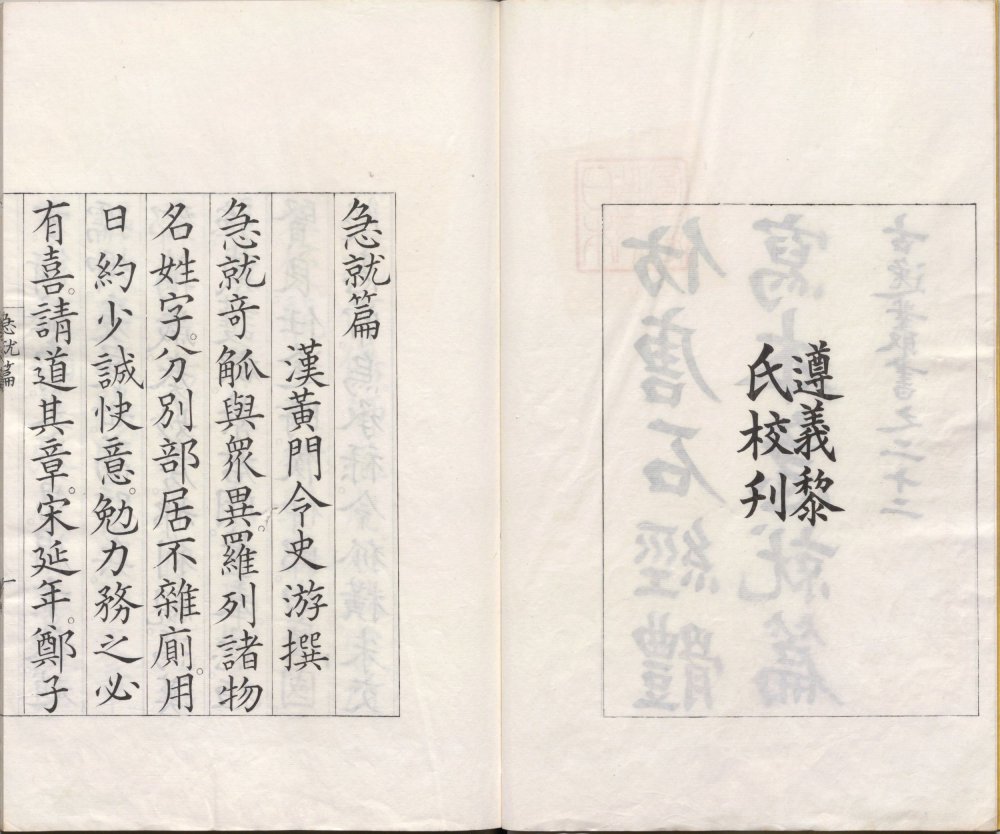 遵義黎
氏校刋
急就篇
漢黃門令史游撰
急就奇觚與衆異。羅列諸物
名姓字。分別部居不雜廁。用
日約少誠快意。勉力務之必
有喜。請道其章。宋延年。鄭子
急就篇
一